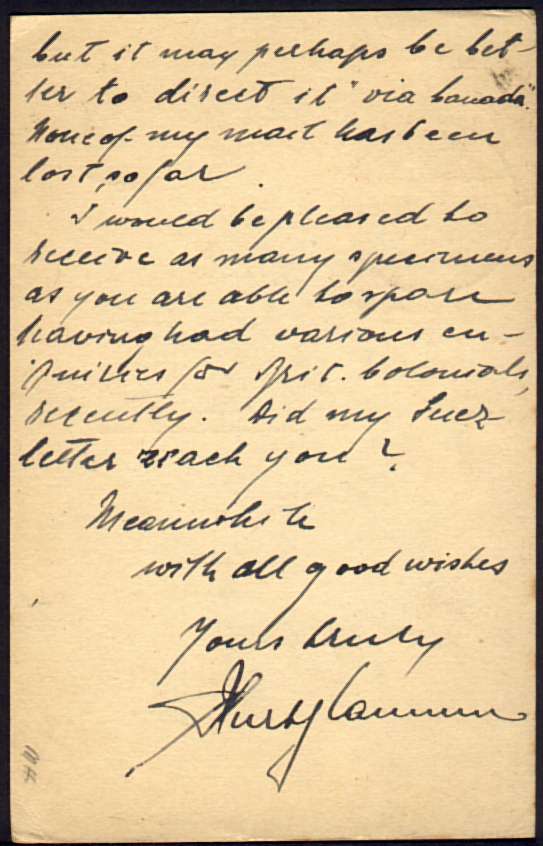 but it may perhaps be bet-
ter to direct it "via Canada".
None of my mail has been
lost, so far.
I would be pleased to
receive as many specimens
as you are able to spare
having had various en-
quiries for Brit. Colonials,
recently. Did my Suez
letter reach you?
Meanwhile
with all good wishes
Yours truly